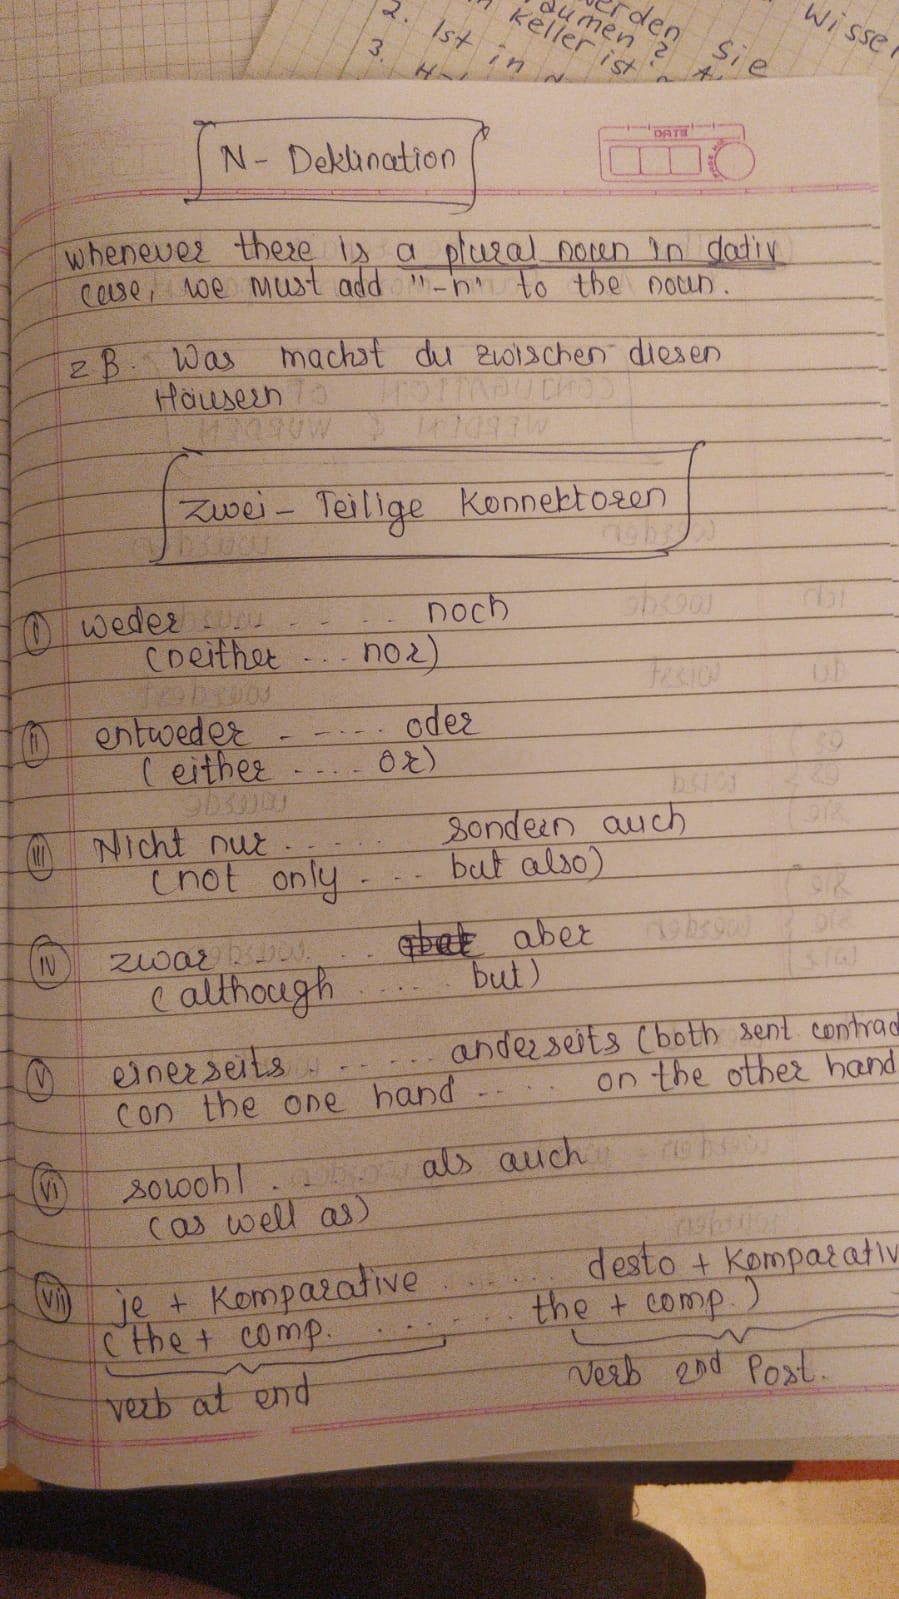 2.
3.
erden
äumen ?
Keller ist
Ist in
Sie
Wisse
N - Deklination
DATE
whenever there is a plural noun in dativ
case, we must add "-n" to the noun.
z B. Was machst du zwischen diesen
Häusern
zwei - Teilige Konnektoren
(i) weder . . . . . noch
(neither . . . nor)
(ii) entweder - - . . . . oder
(either . . . . or)
(iii) Nicht nur . . . . . sondern auch
(not only . . . but also)
(iv) zwar . . . . . aber
(although . . . . . but)
(v) einerseits . . . . . . anderseits (both sent. contrad
(on the one hand - . . . . on the other hand
(vi) sowohl . . . . . als auch
(as well as)
(vii) je + Komparative . . . . . . desto + Komparativ
(the + comp. . . . . . . . the + comp.)
verb at end verb 2nd Post.